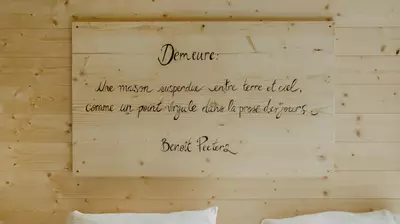 Demeure:
Une maison suspendue entre terre et ciel,
comme un point virgule dans la prose des jours.
Benoît Peeters